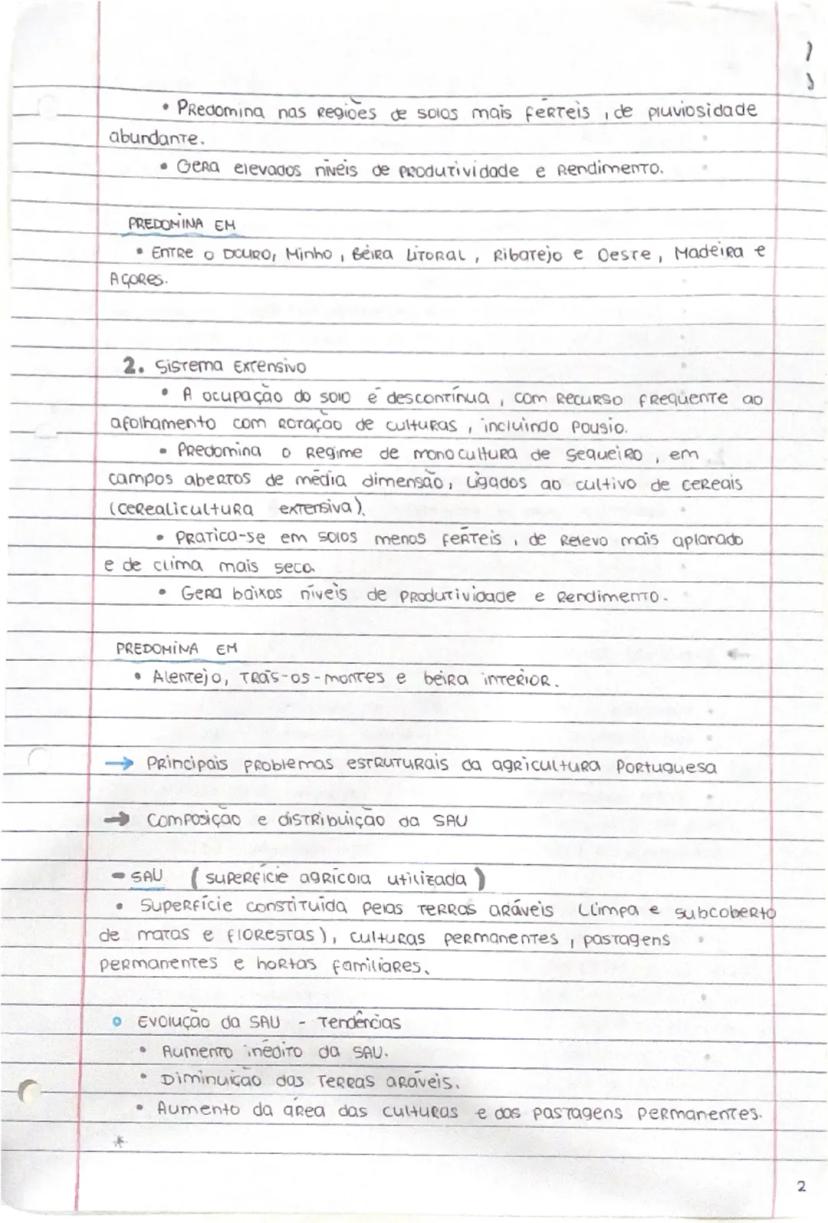 • Predomina nas regiões de solos mais férteis, de pluviosidade
abundante.
• Gera elevados níveis de produtividade e rendimento.
PREDOMINA EM
• Entre o Douro, Minho, Beira Litoral, Ribatejo e Oeste, Madeira e
Açores.
2. Sistema Extensivo
• A ocupação do solo é descontínua, com recurso frequente ao
afolhamento com rotação de culturas, incluindo pousio.
• Predomina o regime de monocultura de sequeiro, em
campos abertos de média dimensão, ligados ao cultivo de cereais
(cerealicultura extensiva).
• Pratica-se em solos menos férteis, de relevo mais aplanado
e de clima mais seco.
• Gera baixos níveis de produtividade e rendimento.
PREDOMINA EM
• Alentejo, Trás-os-montes e beira interior.
→ Principais problemas estruturais da agricultura Portuguesa
→ Composição e distribuição da SAU
- SAU (superfície agrícola utilizada)
• Superfície constituída pelas terras aráveis (limpa e subcoberto
de matas e florestas), culturas permanentes, pastagens
permanentes e hortas familiares.
o Evolução da SAU - Tendências
• Aumento inédito da SAU.
• Diminuição das terras aráveis.
• Aumento da área das culturas e das pastagens permanentes.
*
2